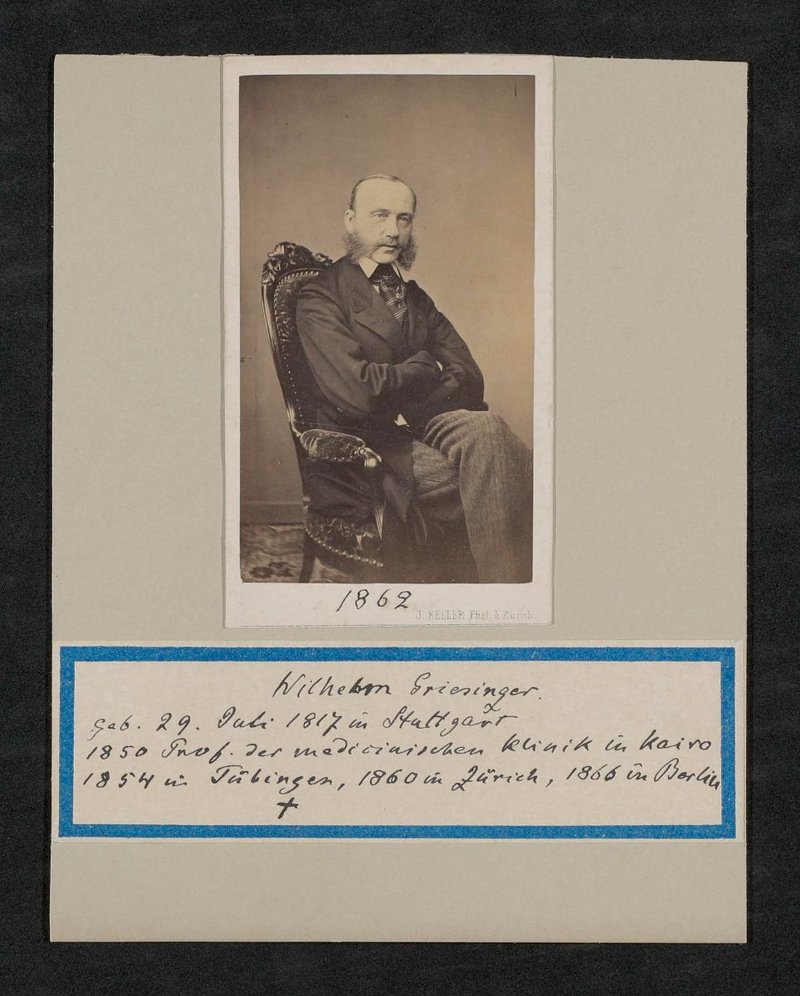 1862
J. KELLER Phot. in Zürich
Wilhelm Griesinger.
geb. 29. Juli 1817 in Stuttgart
1850 Prof. der medicinischen Klinik in Kairo
1854 in Tübingen, 1860 in Zürich, 1866 in Berlin
+